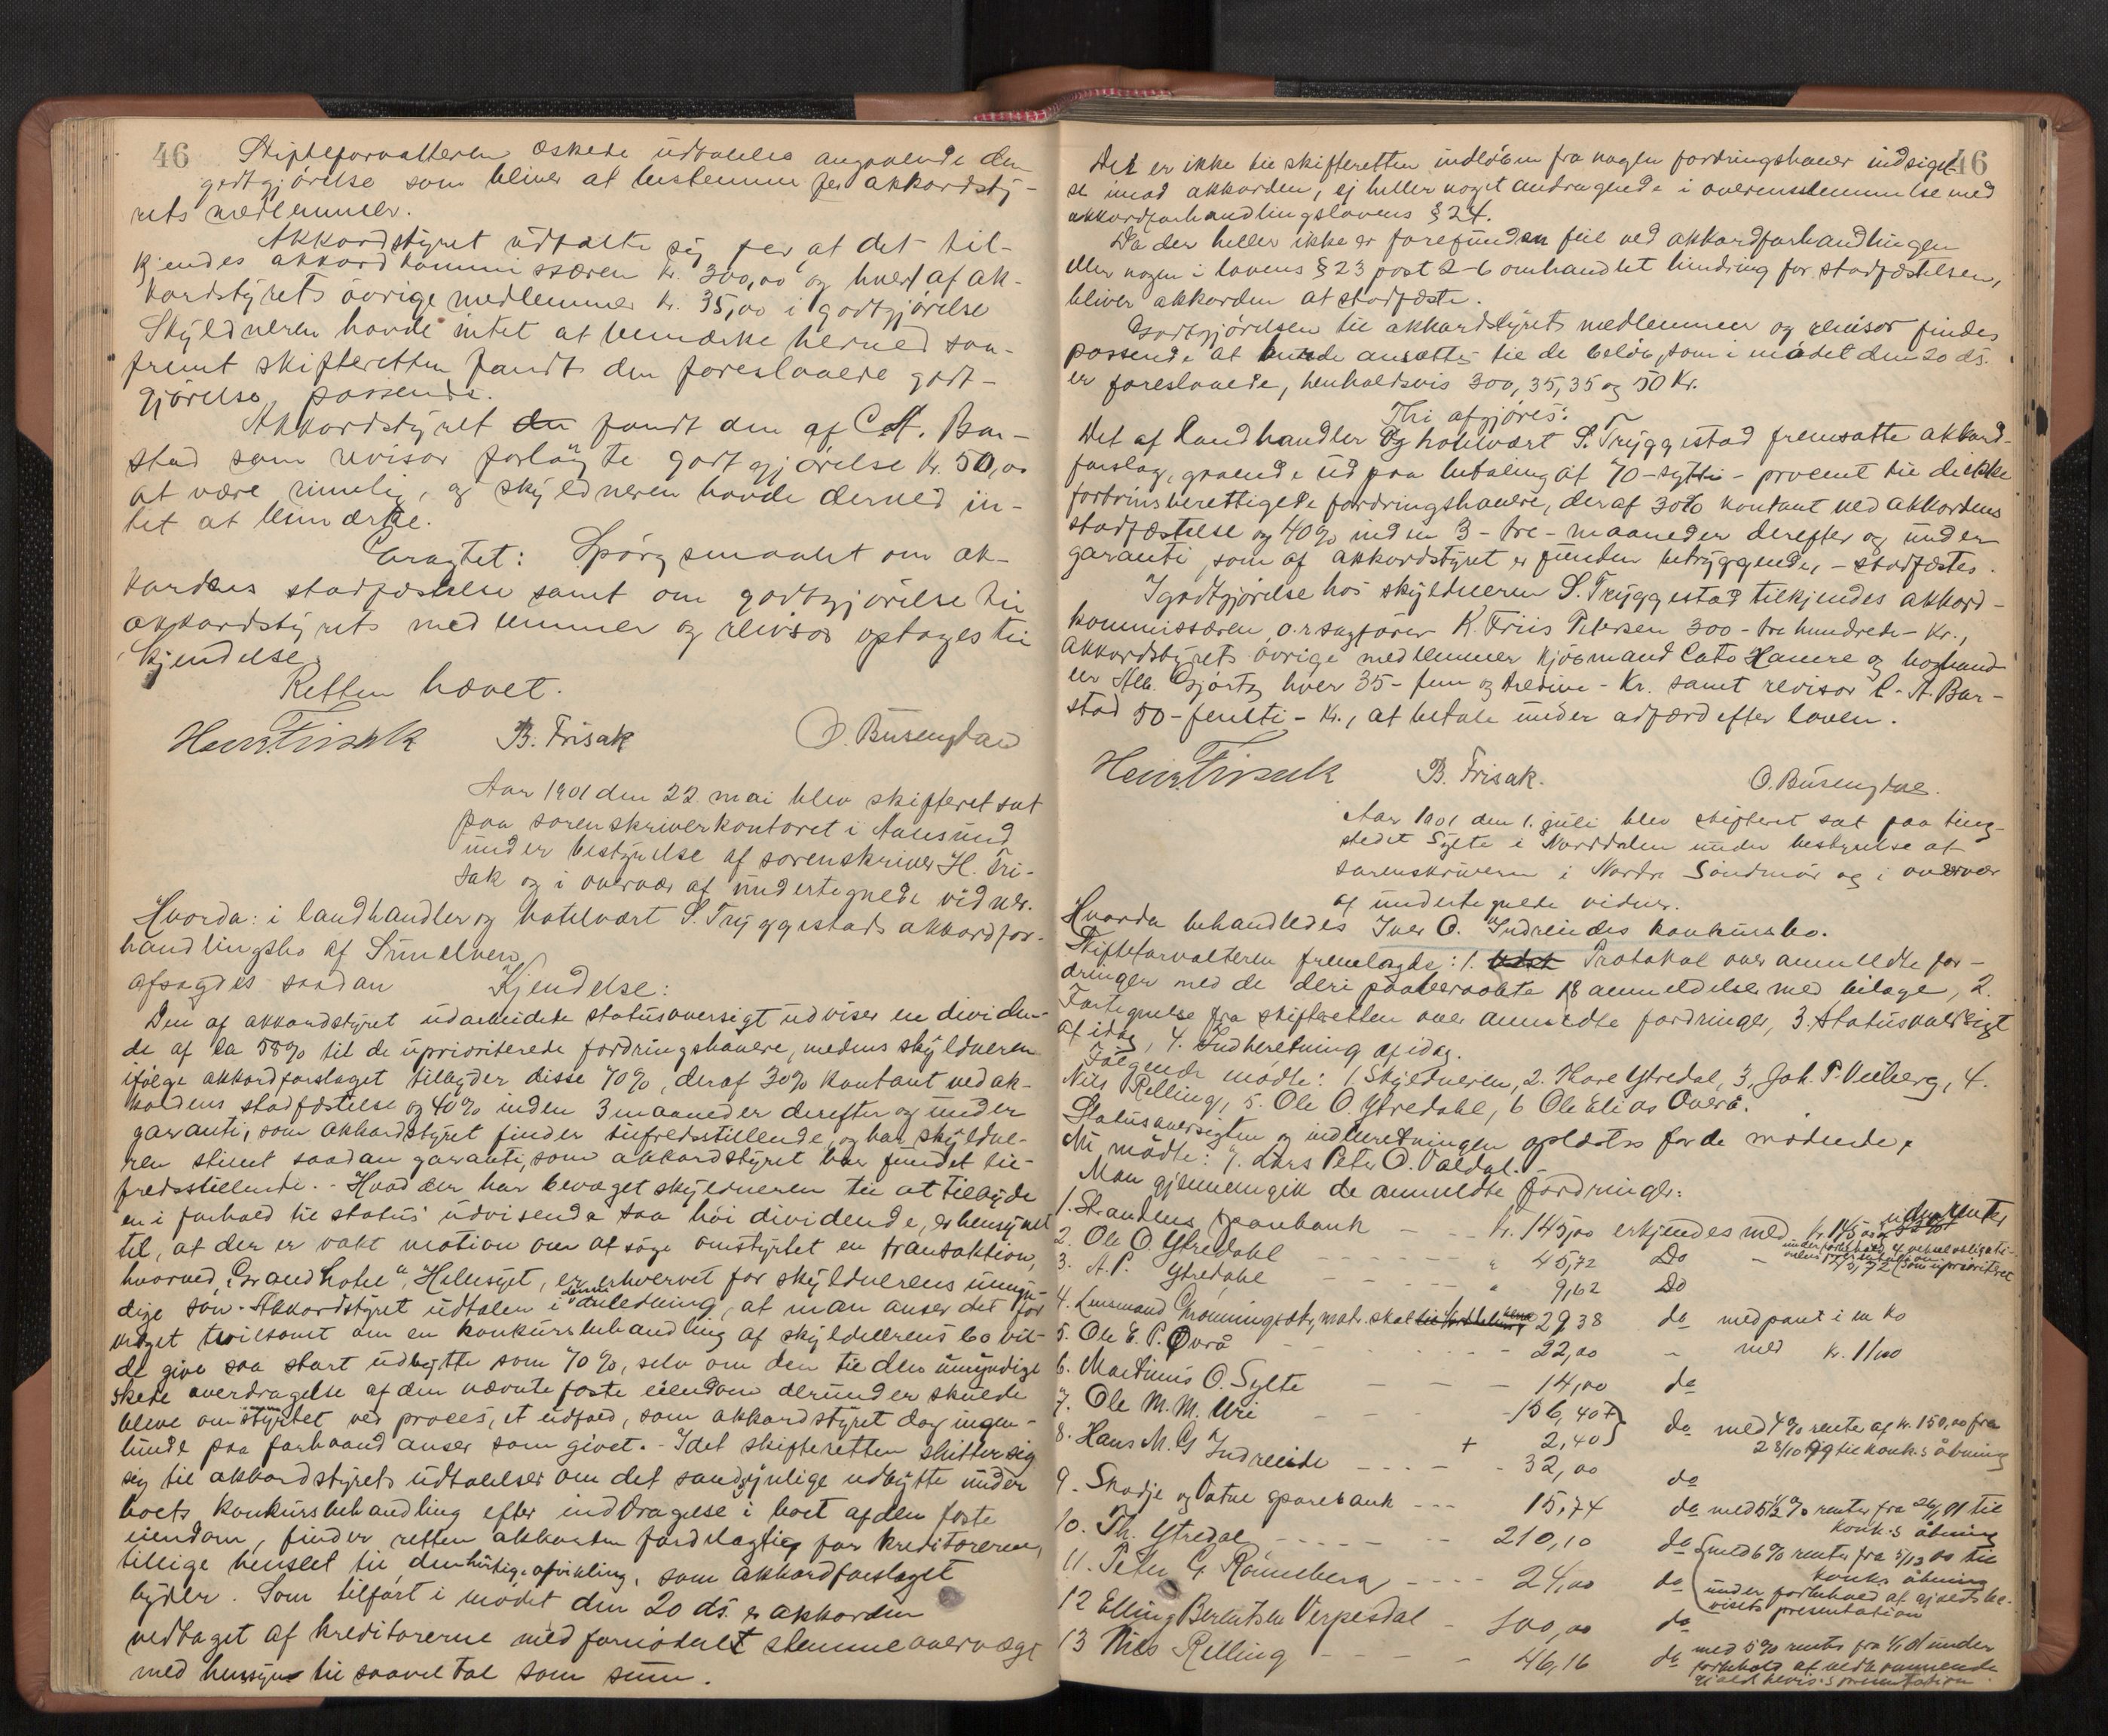 46
Skifteforvalteren æskede udtalelse angaaende den
godtgjörelse som bliver at bestemme for akkordsty-
rets medlemmer.
Akkordstyret udtalte sig for at det til-
kjendes akkordkommissæren kr. 300,00 og hver af ak-
kordstyrets övrige medlemmer kr. 35,00 i godtgjörelse
Skyldneren havde intet at bemærke herved saa-
fremt skifteretten fandt den foreslaaede godt-
gjörelse passende.
Akkordstyret den fandt den af C. A. Bar-
stad som revisor forlangte godtgjörelse kr. 50,00
at være rimelig, og skyldneren havde derved in-
tet at bemærke.
Eragtet: Spörgsmaalet om ak-
kordens stadfæstelse samt om godtgjörelse til
akkordstyrets medlemmer og revisor optages til
kjendelse.
Retten hævet.
Henr. Frisak B. Frisak O. Busengdal
Aar 1901 den 22 mai blev skifteret sat
paa sorenskriverkontoret i Aalesund
under bestyrelse af sorenskriver H. Fri-
sak og i overvær af undertegnede vidner.
Hvorda: i landhandler og hotelvært S. Tryggestads akkordfor-
handlingsbo af Sunelven
afsagdes saadan Kjendelse:
Den af akkordstyret udarbeidete statusoversigt udviser en dividen-
de af ca 58% til de uprioriterede fordringshavere, medens skyldneren
ifölge akkordforslaget tilbyder disse 70%, deraf 30% kontant ved ak-
kordens stadfæstelse og 40% inden 3 maaneder derefter og under
garanti, som akkordstyret finder tilfredsstillende, og har skyldne-
ren stillet saadan garanti, som akkordstyret har fundet til-
fredsstillende. - Hvad der har bevæget skyldneren til at tilbyde
en i forhold til status udvisende saa höi dividende, er hensynet
til, at der er vakt motion om at söge omstyrtet en transaktion,
hvorved "Grand Hotel", Hellesylt, er erhvervet for skyldnerens umyn-
dige sön. Akkordstyret udtaler i denne anledning, at man anser det for
meget tvilsomt om en konkursbehandling af skyldnerens bo vil-
de give saa stort udbytte som 70%, selv om den til den umyndige
skede overdragelse af den nævnte faste eiendom derunder skulde
blive omstyrtet ved proces, et udfald, som akkordstyret dog ingen-
lunde paa forhaand anser som givet. - Idet skifteretten slutter sig
sig til akkordstyrets udtalelser om det sandsynlige udbytte under
boets konkursbehandling efter inddragelse i boet af den faste
eiendom, finder retten akkorden fordelagtig for kreditorerne,
tillige henseet til den hurtige afvikling, som akkordforslaget
byder. Som tilfört i mödet den 20 ds. er akkorden
vedtaget af kreditorerne med fornöden stemmeovervægt
med hensyn til saavel tal som sum.
46
Det er ikke til skifteretten indlöben fra nogen fordringshaver indsigel-
se imod akkorden, ej heller noget andragende i overensstemmelse med
akkordforhandlingslovens § 24.
Da der heller ikke er forefunden feil ved akkordforhandlingen
eller nogen i lovens § 23 post 2-6 omhandlet hindring for stadfæstelsen,
bliver akkorden at stadfæste.
Godtgjörelsen til akkordstyrets medlemmer og revisor findes
passende at burde ansættes til de belöb, som i mödet den 20 ds.
er foreslaaede, henholdsvis 300, 35, 35 og 50 Kr.
Thi afgjöres:
Det af landhandler og hotelvært S. Tryggestad fremsatte akkord-
forslag, gaaende ud paa betaling af 70 - sytti - procent til de ikke
fortrinsberettigede fordringshavere, deraf 30% kontant ved akkordens
stadfæstelse og 40% inden 3 - tre - maaneder derefter og under
garanti, som af akkordstyret er funden betryggende, - stadfæstes.
I godtgjörelse hos skyldneren S. Tryggestad tilkjendes akkord-
kommissæren o.r.sagförer K. Friis Petersen 300 - tre hundrede - Kr.,
akkordstyrets övrige medlemmer kjöbmand Cato Hamre og boghand-
ler Alb. Gjörtz hver 35 - fem og tredive - Kr. samt revisor C. A. Bar-
stad 50 - femti - Kr., at betale under adfærd efter loven.
Henr. Frisak B. Frisak. O. Busengdal.
Aar 1901 den 1. juli blev skifteret sat paa ting-
stedet Sylte i Norddalen under bestyrelse af
sorenskriveren i Nordre Söndmör og i overvær
af undertegnede vidner.
Hvorda behandledes Iver O. Indreides konkursbo.
Skifteforvalteren fremlagde: 1. Protokol over anmeldte for-
dringer med de deri paaberaabte 18 anmeldelser med bilage, 2.
Fortegnelse fra skifteretten over anmeldte fordringer, 3. Statusoversigt
af idag, 4. Indberetning af idag.
Fölgende mödte: 1. Skyldneren, 2. Kare Ytredal, 3. Joh. P. Veiberg, 4.
Nils Relling, 5. Ole O. Ytredahl, 6 Ole Elias Överå.
Statusoversigten og indberetningen oplæstes for de mödende.
Nu mödte: 7. Lars Peter O. Valdal. -
Man gjennemgik de anmeldte fordringer:
1. Strandens sparebank - kr. 145,00 erkjendes med kr. 145,00 uden renter
2. Ole O. Ytredahl - - - " 45,72 Do - 45,72 (som uprioriteret
3. A. P. Ytredahl - - - " 9,62 Do
4. Lensmand 29,38 do med pant i en ko
5. Ole E. P. Överå - - - 22,00 - med kr. 11,00
6. Martinus O. Sylte - - - 14,00 do
7. Ole M. M. Uri - - - 156,40 + } do med 4% rente af kr. 150,00 fra
+ 2,40 } 28/10 99 til konk.s åbning
8. Hans M. G. Indreeide - - - 32,00 do
9. Skodje og Vatne sparebank - - - 15,74 do med 5 1/2% renter fra 26/1 01 til
konk.s åbning
10. Th. Ytredal - - - 210,10 do med 6% renter fra 5/12 00 til
konk.s åbning
11. Peter G. Rönneberg - - - 24,00 do under forbehold af gjældsbe-
visets presentation
12 Elling Berentsen Verpesdal - 100,00 do
13 Nils Relling - - - 46,16 do med 5% rente fra 1/1 01 under
forbehold af vedkommende
gjældsbevis.s presentation.